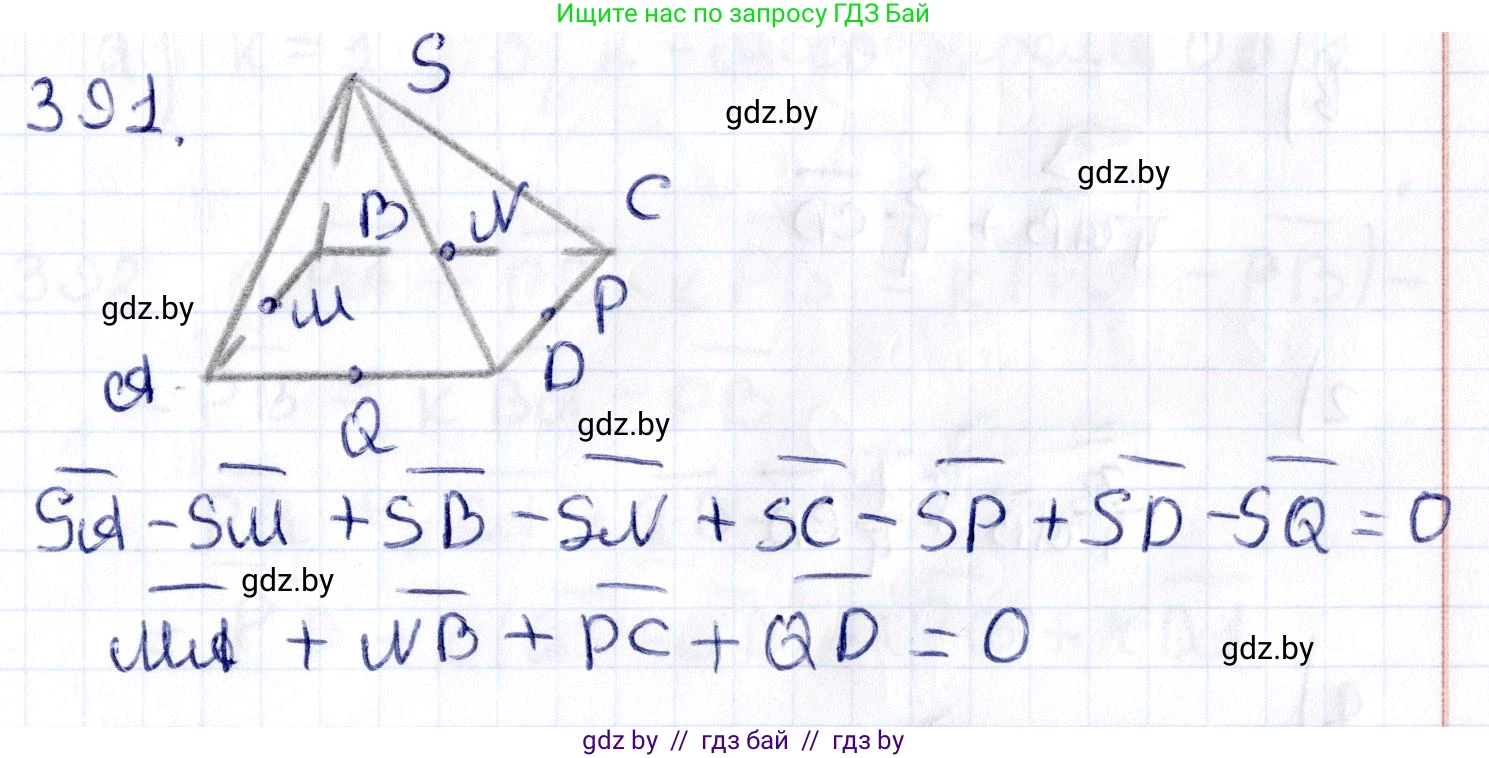 Ищите нас по запросу ГДЗ Бай
391.
S
gdz.by
gdz.by
B
N
C
gdz.by
M
P
A
D
Q
gdz.by
SA - SM + SB - SN + SC - SP + SD - SQ = 0
gdz.by
MA + NB + PC + QD = 0
gdz.by
gdz.by // гдз бай // гдз by